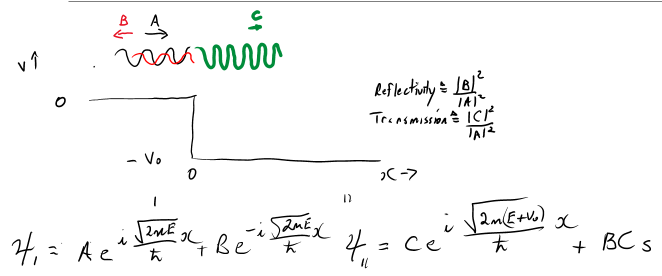 B A C
V↑
0
Reflectivity ≙ |B|²/|A|²
Transmission ≙ |C|²/|A|²
- V₀
0 x→
I II
Ψ_I = A e^{i √(2mE)/ħ x} + B e^{-i √(2mE)/ħ x} Ψ_II = C e^{i √(2m(E+V₀))/ħ x} + BCs